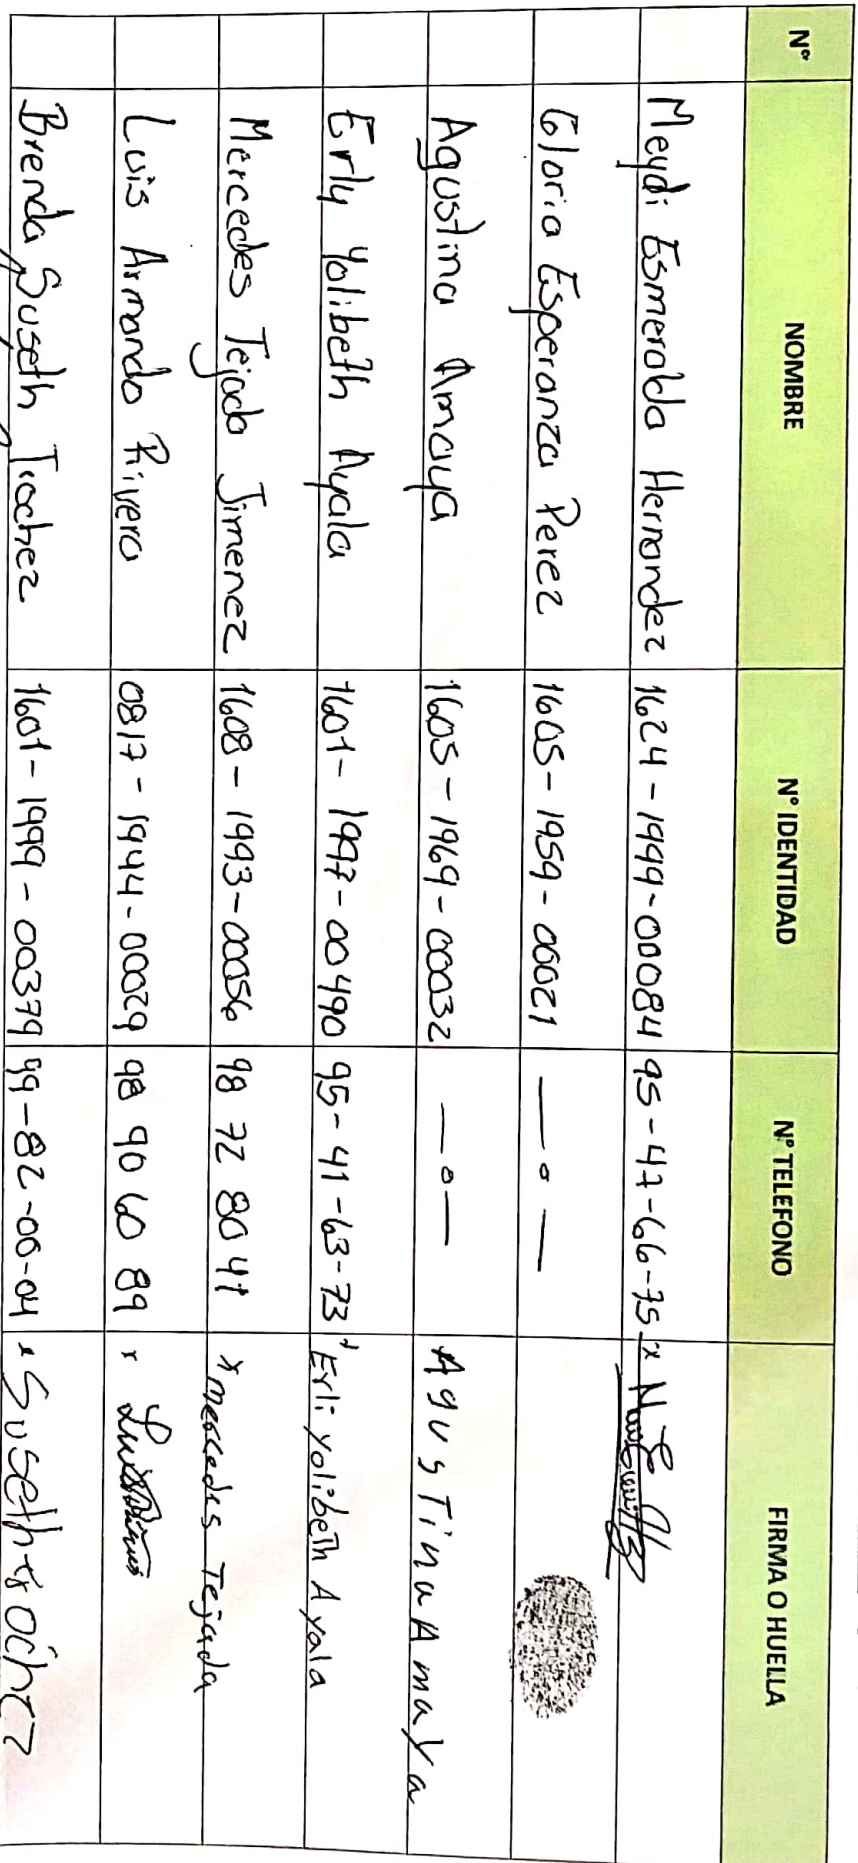 N° NOMBRE N° IDENTIDAD N° TELEFONO FIRMA O HUELLA
Meydi Esmeralda Hernandez 1624-1999-00084 95-47-66-75 x
Gloria Esperanza Perez 1605-1959-00021 —o—
Agustina Amaya 1605-1969-00032 —o— AgusTina Amaya
Erly Yolibeth Ayala 1601-1997-00490 95-41-63-73 Erli yolibeth Ayala
Mercedes Tejada Jimenez 1608-1993-00056 98 72 80 41 x mercedes Tejada
Luis Armando Rivera 0817-1944-00029 98 90 60 89 x
Brenda Suseth Trochez 1601-1999-00379 99-82-00-04 x Suseth trochez